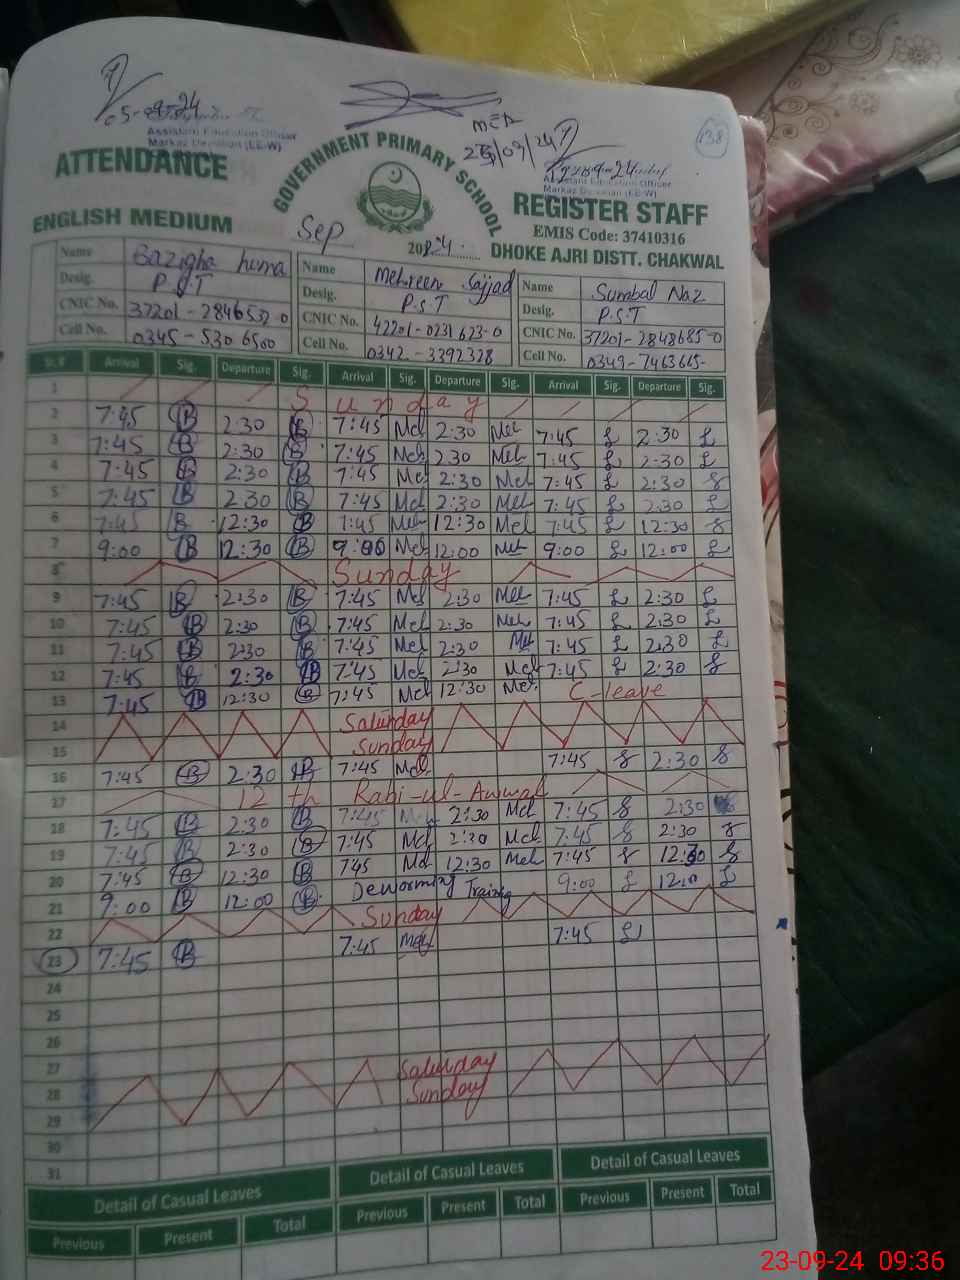 05-09-24
Assistant Education Officer
Markaz (EE-W)
MEA
23/09/24
138
Assistant Education Officer
Markaz (EE-W)
ATTENDANCE
GOVERNMENT PRIMARY SCHOOL
REGISTER STAFF
ENGLISH MEDIUM
Sep
2024
EMIS Code: 37410316
DHOKE AJRI DISTT. CHAKWAL
Name Bazigha huma Name Mehreen Sajjad Name Sumbal Naz
Desig. P.S.T Desig. P.S.T Desig. P.S.T
CNIC No. 37201-2846532-0 CNIC No. 42201-0231623-0 CNIC No. 37201-2848685-0
Cell No. 0345-5306500 Cell No. 0342-3392328 Cell No. 0349-7463665-
Sr.# Arrival Sig. Departure Sig. Arrival Sig. Departure Sig. Arrival Sig. Departure Sig.
1 Sunday
2 7:45 B 2:30 B 7:45 Mel 2:30 Mel 7:45 £ 2:30 £
3 7:45 B 2:30 B 7:45 Mel 2:30 Mel 7:45 £ 2:30 £
4 7:45 B 2:30 B 7:45 Mel 2:30 Mel 7:45 £ 2:30 £
5 7:45 B 2:30 B 7:45 Mel 2:30 Mel 7:45 £ 2:30 £
6 7:45 B 12:30 B 7:45 Mel 12:30 Mel 7:45 £ 12:30 £
7 9:00 B 12:30 B 9:00 Mel 12:00 Mel 9:00 £ 12:00 £
8 Sunday
9 7:45 B 2:30 B 7:45 Mel 2:30 Mel 7:45 £ 2:30 £
10 7:45 B 2:30 B 7:45 Mel 2:30 Mel 7:45 £ 2:30 £
11 7:45 B 2:30 B 7:45 Mel 2:30 Mel 7:45 £ 2:30 £
12 7:45 B 2:30 B 7:45 Mel 2:30 Mel 7:45 £ 2:30 £
13 7:45 B 12:30 B 7:45 Mel 12:30 Mel C-leave
14 Saturday
15 Sunday
16 7:45 B 2:30 B 7:45 Mel 7:45 £ 2:30 £
17 12th Rabi-ul-Awwal
18 7:45 B 2:30 B 7:45 Mel 2:30 Mel 7:45 £ 2:30
19 7:45 B 2:30 B 7:45 Mel 2:30 Mel 7:45 £ 2:30 £
20 7:45 B 12:30 B 7:45 Mel 12:30 Mel 7:45 £ 12:30 £
21 9:00 B 12:00 B Deworming Training 9:00 £ 12:00 £
22 Sunday
23 7:45 B 7:45 Mel 7:45 £
24
25
26
27
28 Saturday
29 Sunday
30
31
Detail of Casual Leaves Detail of Casual Leaves Detail of Casual Leaves
Previous Present Total Previous Present Total Previous Present Total
23-09-24 09:36